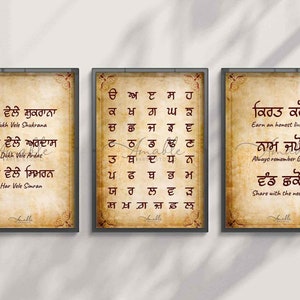 ਵੇਲੇ ਸ਼ੁਕਰਾਨਾ
Vele Shukrana
ਵੇਲੇ ਅਰਦਾਸ
Dukh Vele Ardas
ਵੇਲੇ ਸਿਮਰਨ
Har Vele Simran
Amolle
ੳ ਅ ੲ ਸ ਹ
ਕ ਖ ਗ ਘ ਙ
ਚ ਛ ਜ ਝ ਞ
ਟ ਠ ਡ ਢ ਣ
ਤ ਥ ਦ ਧ ਨ
ਪ ਫ ਬ ਭ ਮ
ਯ ਰ ਲ ਵ ੜ
ਸ਼ ਖ਼ ਗ਼ ਜ਼ ਫ਼ ਲ਼
ਕਿਰਤ
Earn an honest
ਨਾਮ
Always remember
ਵੰਡ ਛਕੋ
Share with the